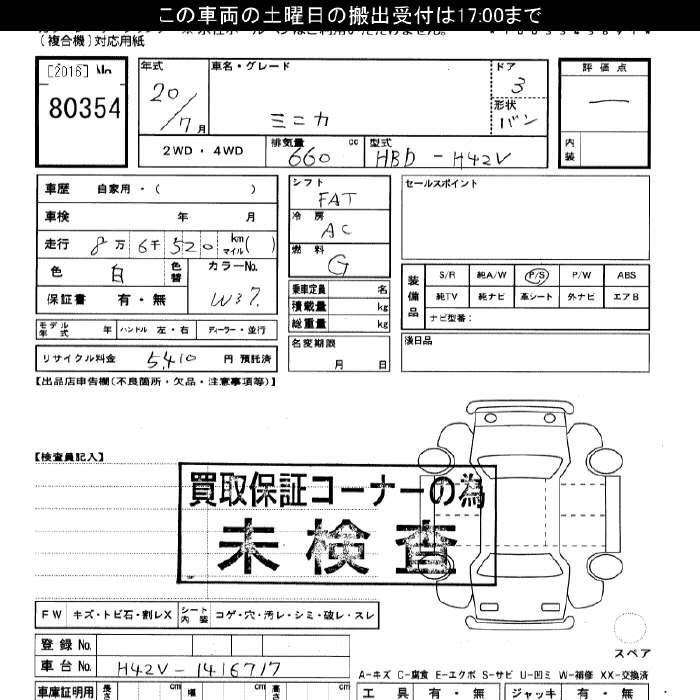 この車両の土曜日の搬出受付は17:00まで
(複合機)対応用紙
[2016] No
80354
年式
20/7月
車名・グレード
ミニカ
ドア
3
形状
バン
評価点
一
内装
2WD・4WD
排気量
660 cc
型式
HBD-H42V
車歴 自家用・( )
車検 年 月
走行 8万6千520 km マイル( )
色 白 色替
カラーNo.
W37.
保証書 有・無
シフト
FAT
冷房
AC
燃料
G
セールスポイント
装備品
S/R 純A/W P/S P/W ABS
純TV 純ナビ 革シート 外ナビ エアB
ナビ型番:
乗車定員 名
積載量 kg
総重量 kg
モデル年式 年 ハンドル 左・右 ディーラー・並行
名変期限
月 日
瀬日品
リサイクル料金 5,410 円 預託済
【出品店申告欄(不良箇所・欠品・注意事項等)】
【検査員記入】
買取保証コーナーの為
未検査
FW キズ・トビ石・割レX シート内装 コゲ・穴・汚レ・シミ・破レ・スレ
スペア
登録No.
車台No. H42V-1416717
A-キズ C-腐食 E-エクボ S-サビ U-凹ミ W-補修 XX-交換済
車庫証明用 長さ cm 幅 cm 高さ cm
工具 有・無 ジャッキ 有・無